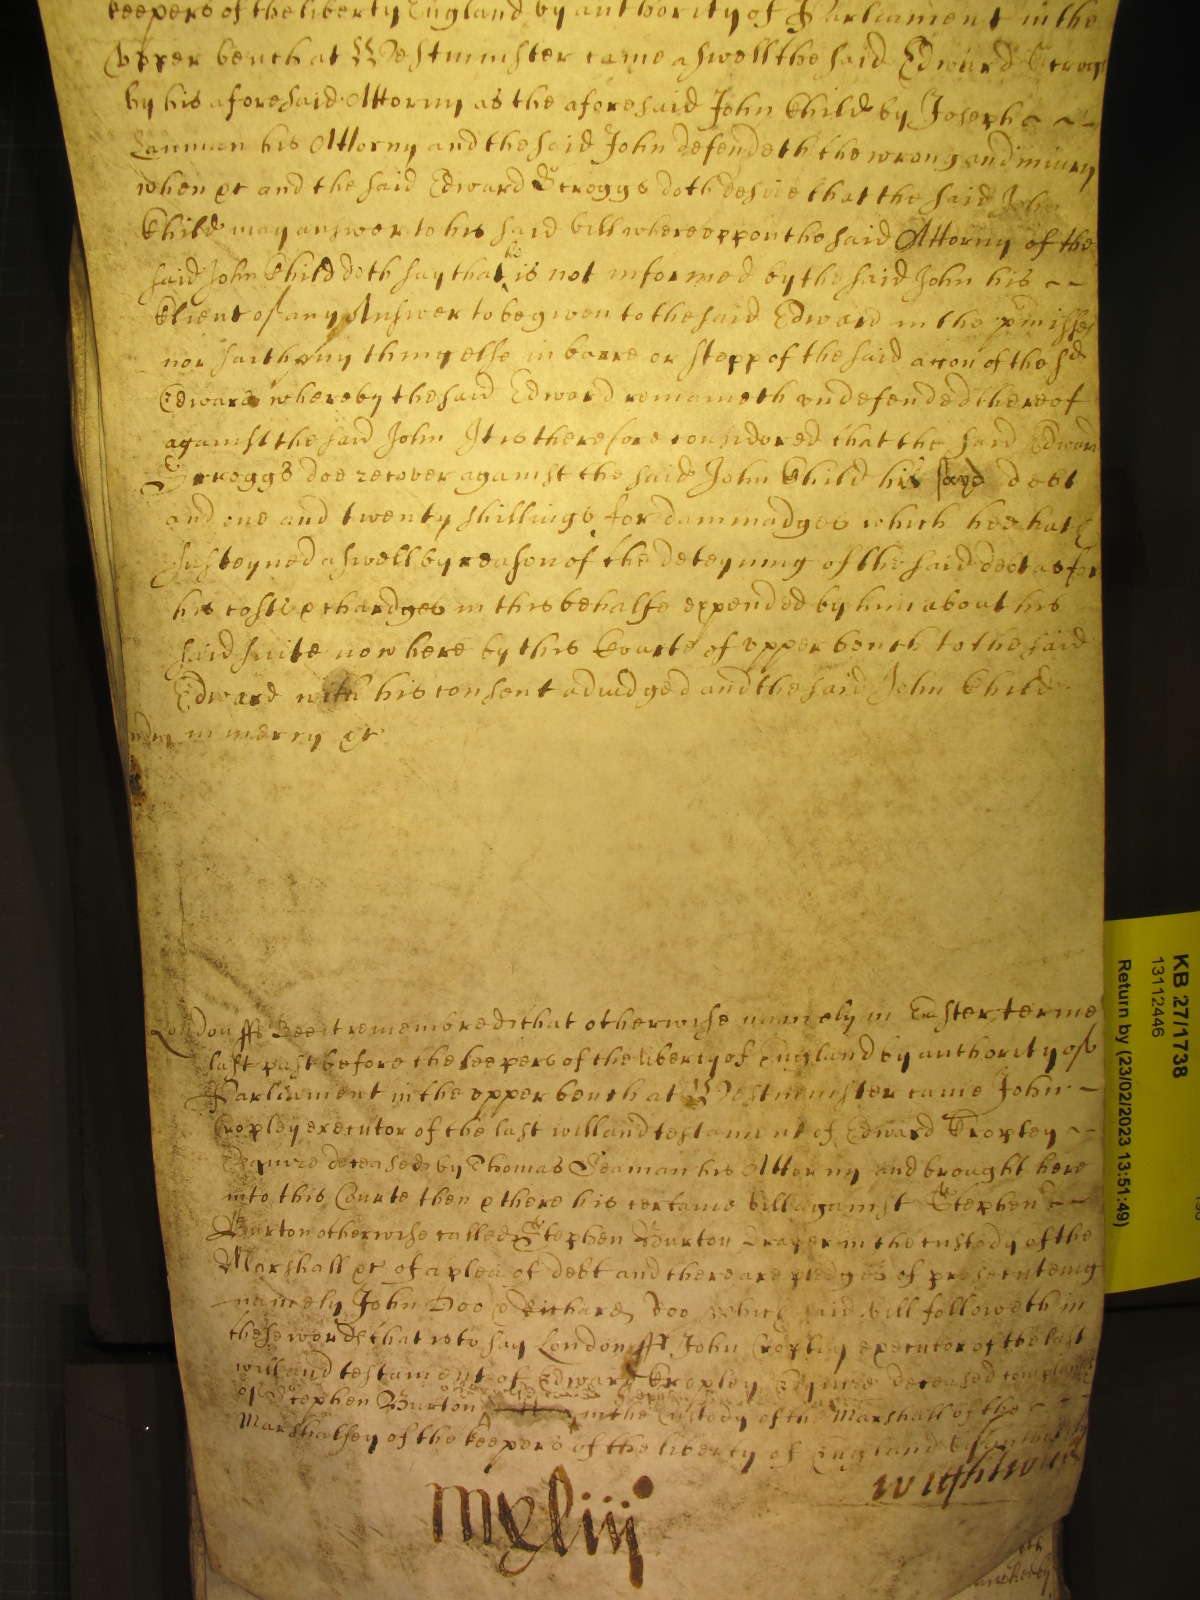 keepers of the liberty England by authority of Parliament in the
upper bench at Westminster came aswell the said Edward Scroggs
by his aforesaid Attorny as the aforesaid John Child by Joseph
Lanman his Attorny and the said John defendeth the wrong and iniury
when &c and the said Edward Scroggs doth desire that the said John
Child may answer to his said bill whereuppon the said Attorny of the
said John Child doth say that he is not informed by the said John his
Client of any Answer to be given to the said Edward in the pmisses
nor saith any thing else in barre or stopp of the said accon of the sd
Edward whereby the said Edward remaineth vndefended thereof
against the said John It is therefore considered that the said Edward
Scroggs doe recover against the said John Child his said debt
and one and twenty shillings for dammadges which hee hath
susteyned aswell by reason of the deteyning of the said debt as for
his costs & chardges in this behalfe expended by him about his
said suite now here by this Courte of vpper bench to the said
Edward with his consent adiudged and the said John Child
in mercy &c
London ss Bee it remembred that otherwise namely in Easter terme
last past before the keepers of the liberty of England by authority of
Parliament in the vpper bench at Westminster came John
Cropley executor of the last will and testament of Edward Cropley
Esquire deceased by Thomas Seaman his Attorny and brought here
into this Courte then & there his certaine bill against Stephen
Burton otherwise called Stephen Burton Draper in the custody of the
Marshall &c of a plea of debt and there are pledges of prosecuteing
namely John Doo & Richard Roo which said bill followeth in
these words that is to say London ss John Cropley executor of the last
will and testament of Edward Cropley Esquire deceased complaines
of Stephen Burton in the Custody of the Marshall of the
Marshalsey of the keepers of the liberty of England by authority
Wightwick
mxliij
KB 27/1738
13112446
Return by (23/02/2023 13:51:49)